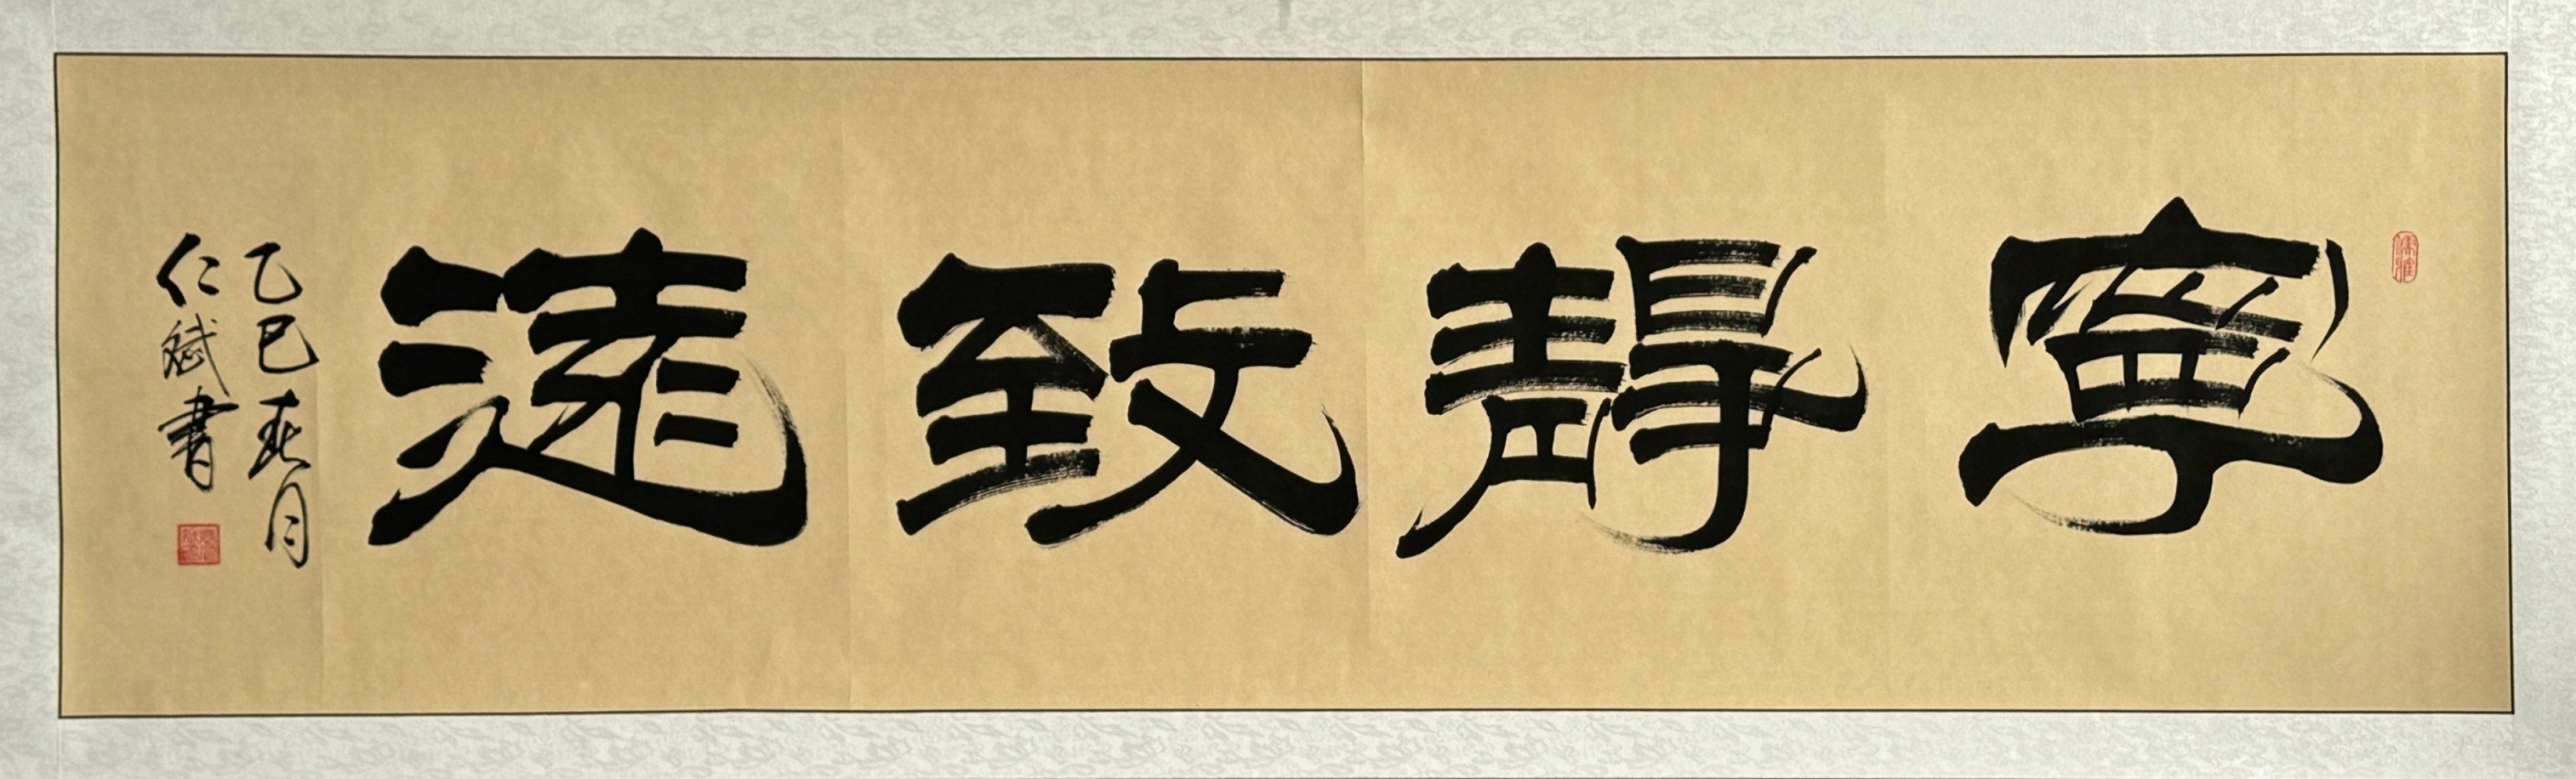 寧靜致遠
乙巳春月
仁斌書